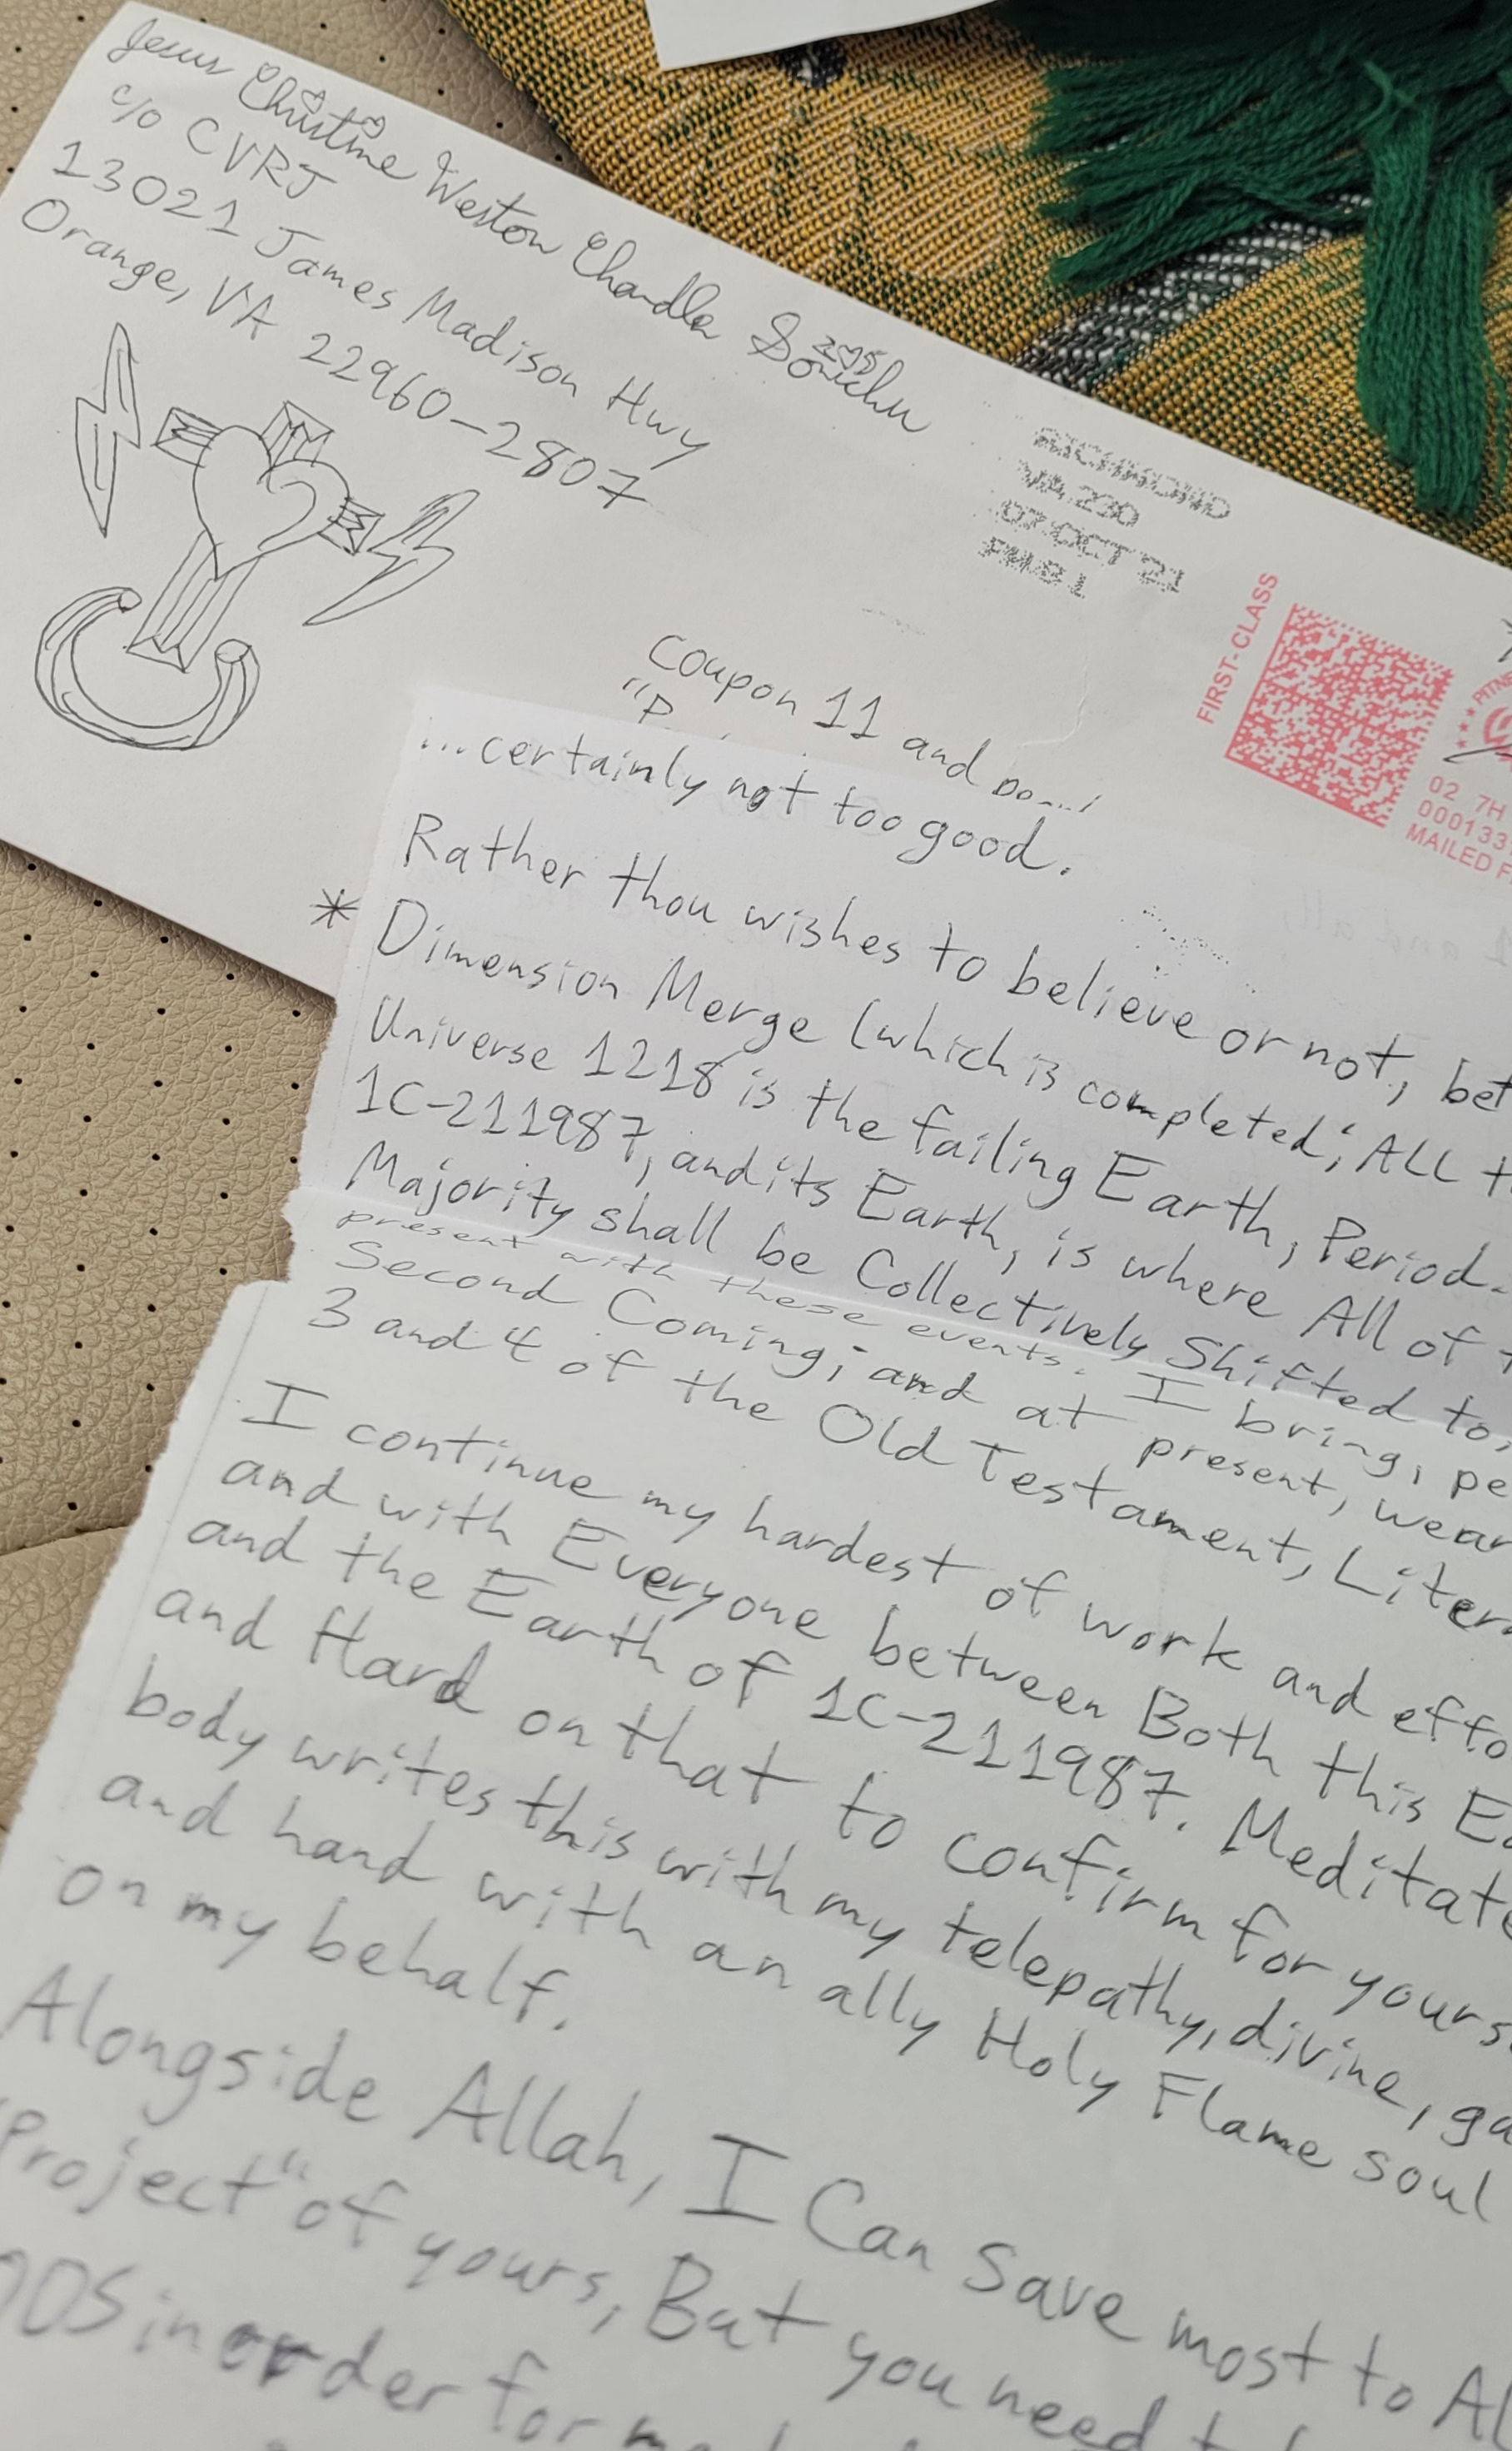 Jesus Christine Weston Chandler Sonichu
c/o CVRJ
13021 James Madison Hwy
Orange, VA 22960-2807
RICHMOND
VA 230
07 OCT 21
PM 8 1
FIRST-CLASS
02 7H
MAILED F
Coupon 11 and
...certainly not too good.
Rather thou wishes to believe or not, bet
* Dimension Merge (which is completed; ALL t
Universe 1218 is the failing Earth, Period.
1C-211987, and its Earth, is where All of
Majority shall be Collectively Shifted to,
present with these events. I bring, pe
Second Coming; and at present, wear
3 and 4 of the Old Testament, Liter
I continue my hardest of work and effo
and with Everyone between Both this Ea
and the Earth of 1C-211987. Meditate
and Hard on that to confirm for yours
body writes this with my telepathy, divine, ga
and hand with an ally Holy Flame soul
on my behalf.
Alongside Allah, I Can Save most to Al
Project" of yours, But you need
in order for